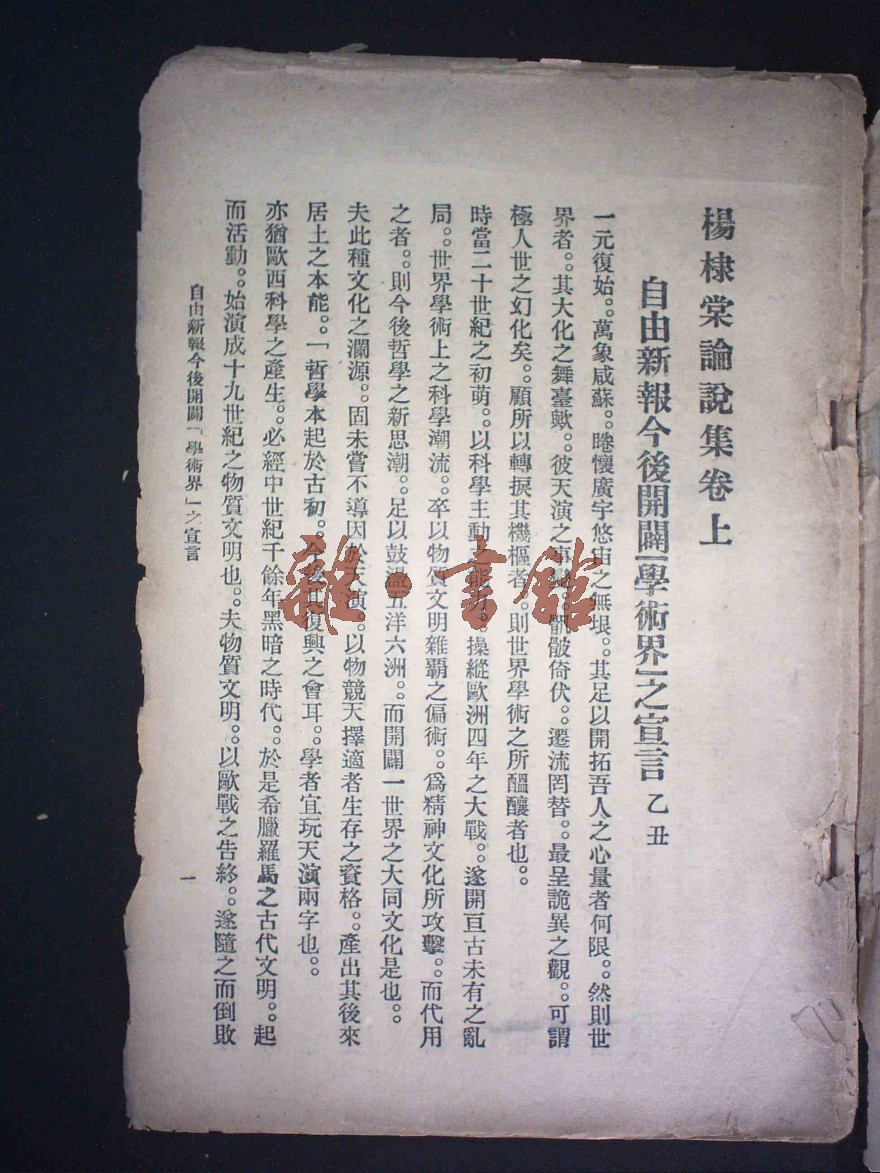 楊棣棠論說集卷上
自由新報今後開闢「學術界」之宣言 乙丑
一元復始。。萬象咸蘇。。睠懷廣宇悠宙之無垠。。其足以開拓吾人之心量者何限。。然則世
界者。。其大化之舞臺歟。。彼天演之事。。骯骰倚伏。。遷流罔替。。最呈詭異之觀。。可謂
極人世之幻化矣。。顧所以轉捩其機樞者。。則世界學術之所醞釀者也。。
時當二十世紀之初萌。。以科學主動之能力。。操縱歐洲四年之大戰。。遂開亘古未有之亂
局。。世界學術上之科學潮流。。卒以物質文明雜霸之偏術。。爲精神文化所攻擊。。而代用
之者。。則今後哲學之新思潮。。足以鼓盪五洋六洲。。而開闢一世界之大同文化是也。。
夫此種文化之瀾源。。固未嘗不導因於天演。。以物競天擇適者生存之資格。。產出其後來
居上之本能。。「哲學本起於古初。。今後其復興之會耳。。學者宜玩天演兩字也。。
亦猶歐西科學之產生。。必經中世紀千餘年黑暗之時代。。於是希臘羅馬之古代文明。。起
而活動。。始演成十九世紀之物質文明也。。夫物質文明。。以歐戰之告終。。遂隨之而倒敗
自由新報今後開闢「學術界」之宣言
一
雜·書館